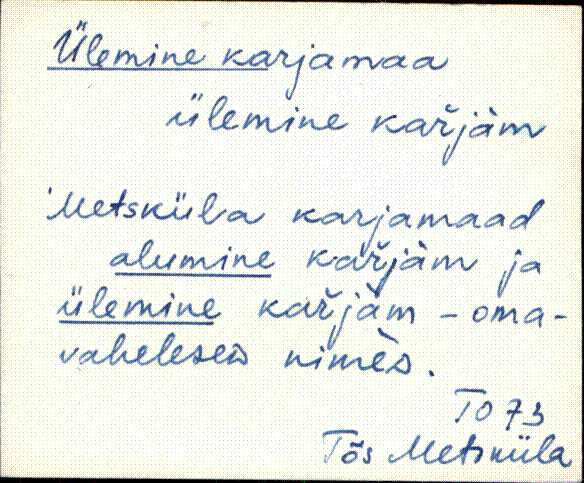 Ülemine karjamaa
ülemine kařjàm
Metsküla karjamaad
alumine kařjàm ja
ülemine kařjàm - oma-
vaheleses nimès.
TO 73
Tõs Metsküla